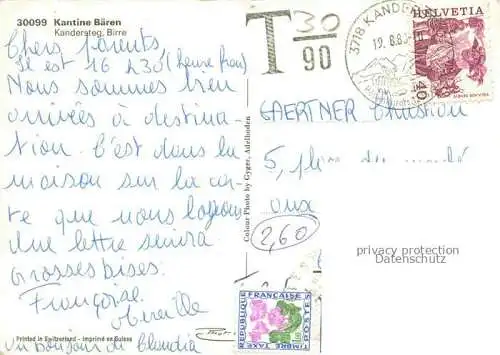 30099 Kantine Bären
Kandersteg, Birre
Chers parents,
Il est 16 h 30 (heure fran)
Nous sommes bien
arrivées à destina-
tion. C'est dans la
maison sur la car-
te que nous logeons
Une lettre suivra
Grosses bises.
Françoise
Mireille
un bonjour de Claudia
Printed in Switzerland - Imprimé en Suisse
Colour Photo by Gyger, Adelboden
T 30
90
3718 KANDER
19. 8.8
HELVETIA
40
GAERTNER Christian
5, place du
aux
2,60
privacy protection
Datenschutz
REPUBLIQUE FRANÇAISE
POSTES
TIMBRE TAXE